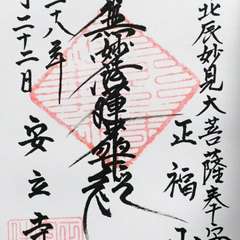 北辰妙見大菩薩奉安
正福山
南無妙法蓮華経
二十八年
月二十二日
安立寺